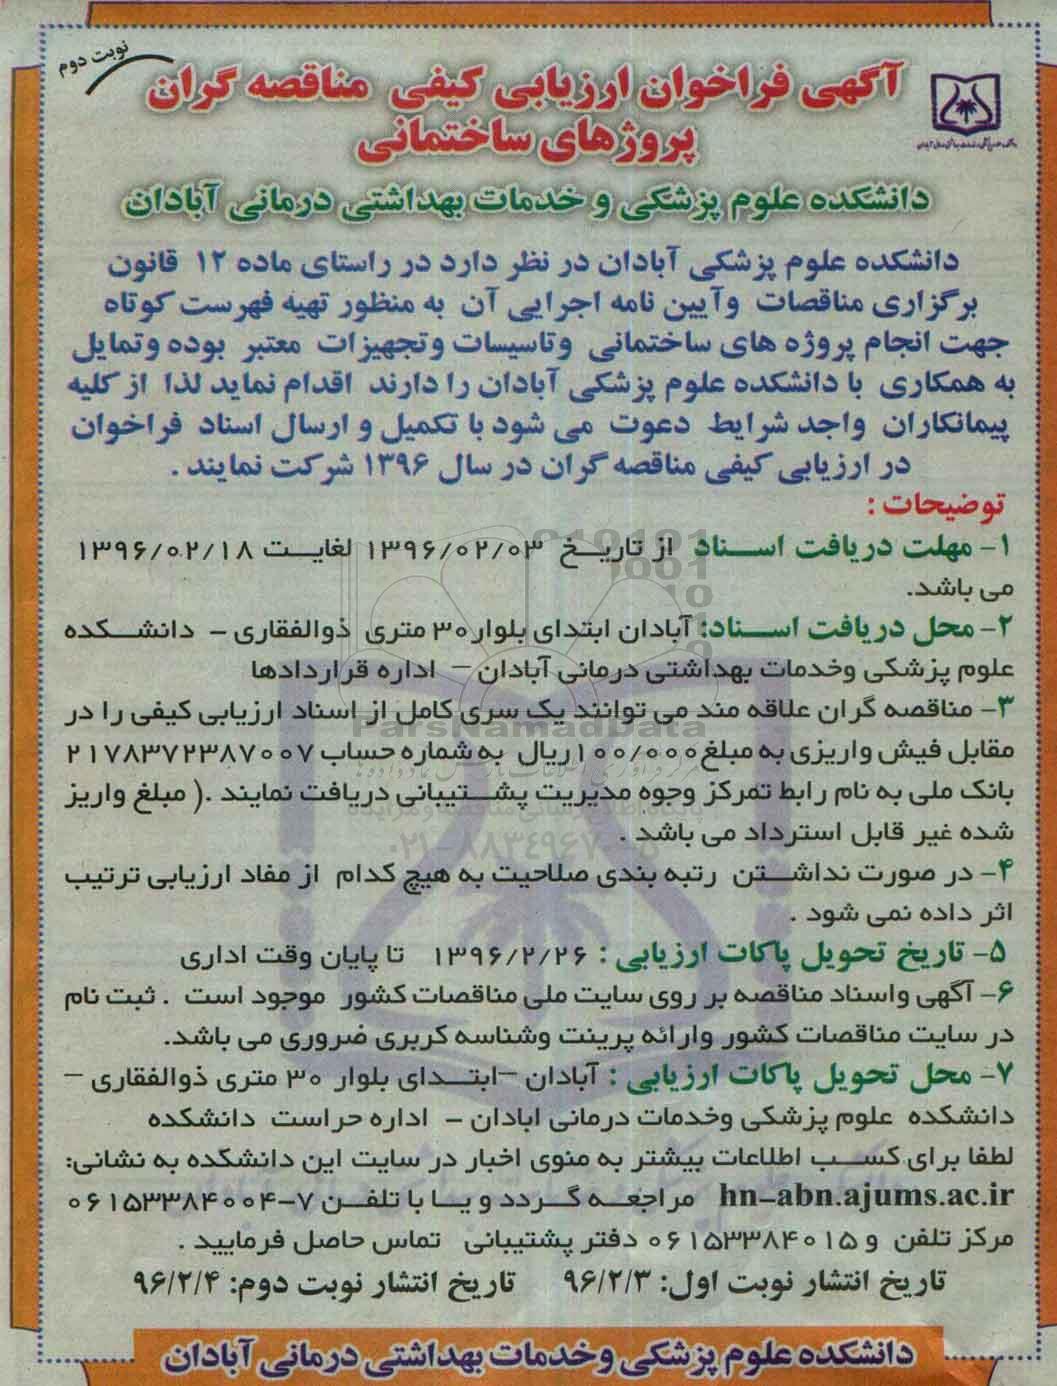 نوبت دوم
آگهی فراخوان ارزیابی کیفی مناقصه گران
پروژهای ساختمانی
دانشکده علوم پزشکی و خدمات بهداشتی درمانی آبادان
دانشکده علوم پزشکی آبادان در نظر دارد در راستای ماده ۱۲ قانون
برگزاری مناقصات وآیین نامه اجرایی آن به منظور تهیه فهرست کوتاه
جهت انجام پروژه های ساختمانی وتاسیسات وتجهیزات معتبر بوده وتمایل
به همکاری با دانشکده علوم پزشکی آبادان را دارند اقدام نماید لذا از کلیه
پیمانکاران واجد شرایط دعوت می شود با تکمیل و ارسال اسناد فراخوان
در ارزیابی کیفی مناقصه گران در سال ۱۳۹۶ شرکت نمایند .
توضیحات :
۱- مهلت دریافت اسناد از تاریخ ۱۳۹۶/۰۲/۰۳ لغایت ۱۳۹۶/۰۲/۱۸
می باشد.
۲- محل دریافت اسناد: آبادان ابتدای بلوار۳۰ متری ذوالفقاری - دانشکده
علوم پزشکی وخدمات بهداشتی درمانی آبادان – اداره قراردادها
۳- مناقصه گران علاقه مند می توانند یک سری کامل از اسناد ارزیابی کیفی را در
مقابل فیش واریزی به مبلغ ۱۰۰/۰۰۰ ریال به شماره حساب ۲۱۷۸۳۷۲۳۸۷۰۰۷
بانک ملی به نام رابط تمرکز وجوه مدیریت پشتیبانی دریافت نمایند .( مبلغ واریز
شده غیر قابل استرداد می باشد .
۴- در صورت نداشتن رتبه بندی صلاحیت به هیچ کدام از مفاد ارزیابی ترتیب
اثر داده نمی شود .
۵- تاریخ تحویل پاکات ارزیابی : ۱۳۹۶/۲/۲۶ تا پایان وقت اداری
۶- آگهی واسناد مناقصه بر روی سایت ملی مناقصات کشور موجود است . ثبت نام
در سایت مناقصات کشور وارائه پرینت وشناسه کربری ضروری می باشد.
۷- محل تحویل پاکات ارزیابی : آبادان –ابتدای بلوار ۳۰ متری ذوالفقاری –
دانشکده علوم پزشکی وخدمات درمانی ابادان - اداره حراست دانشکده
لطفا برای کسب اطلاعات بیشتر به منوی اخبار در سایت این دانشکده به نشانی:
hn-abn.ajums.ac.ir مراجعه گردد و یا با تلفن ۷-۰۶۱۵۳۳۸۴۰۰۴
مرکز تلفن و ۰۶۱۵۳۳۸۴۰۱۵ دفتر پشتیبانی تماس حاصل فرمایید .
تاریخ انتشار نوبت اول: ۹۶/۲/۳ تاریخ انتشار نوبت دوم: ۹۶/۲/۴
دانشکده علوم پزشکی وخدمات بهداشتی درمانی آبادان
ParsNamadData